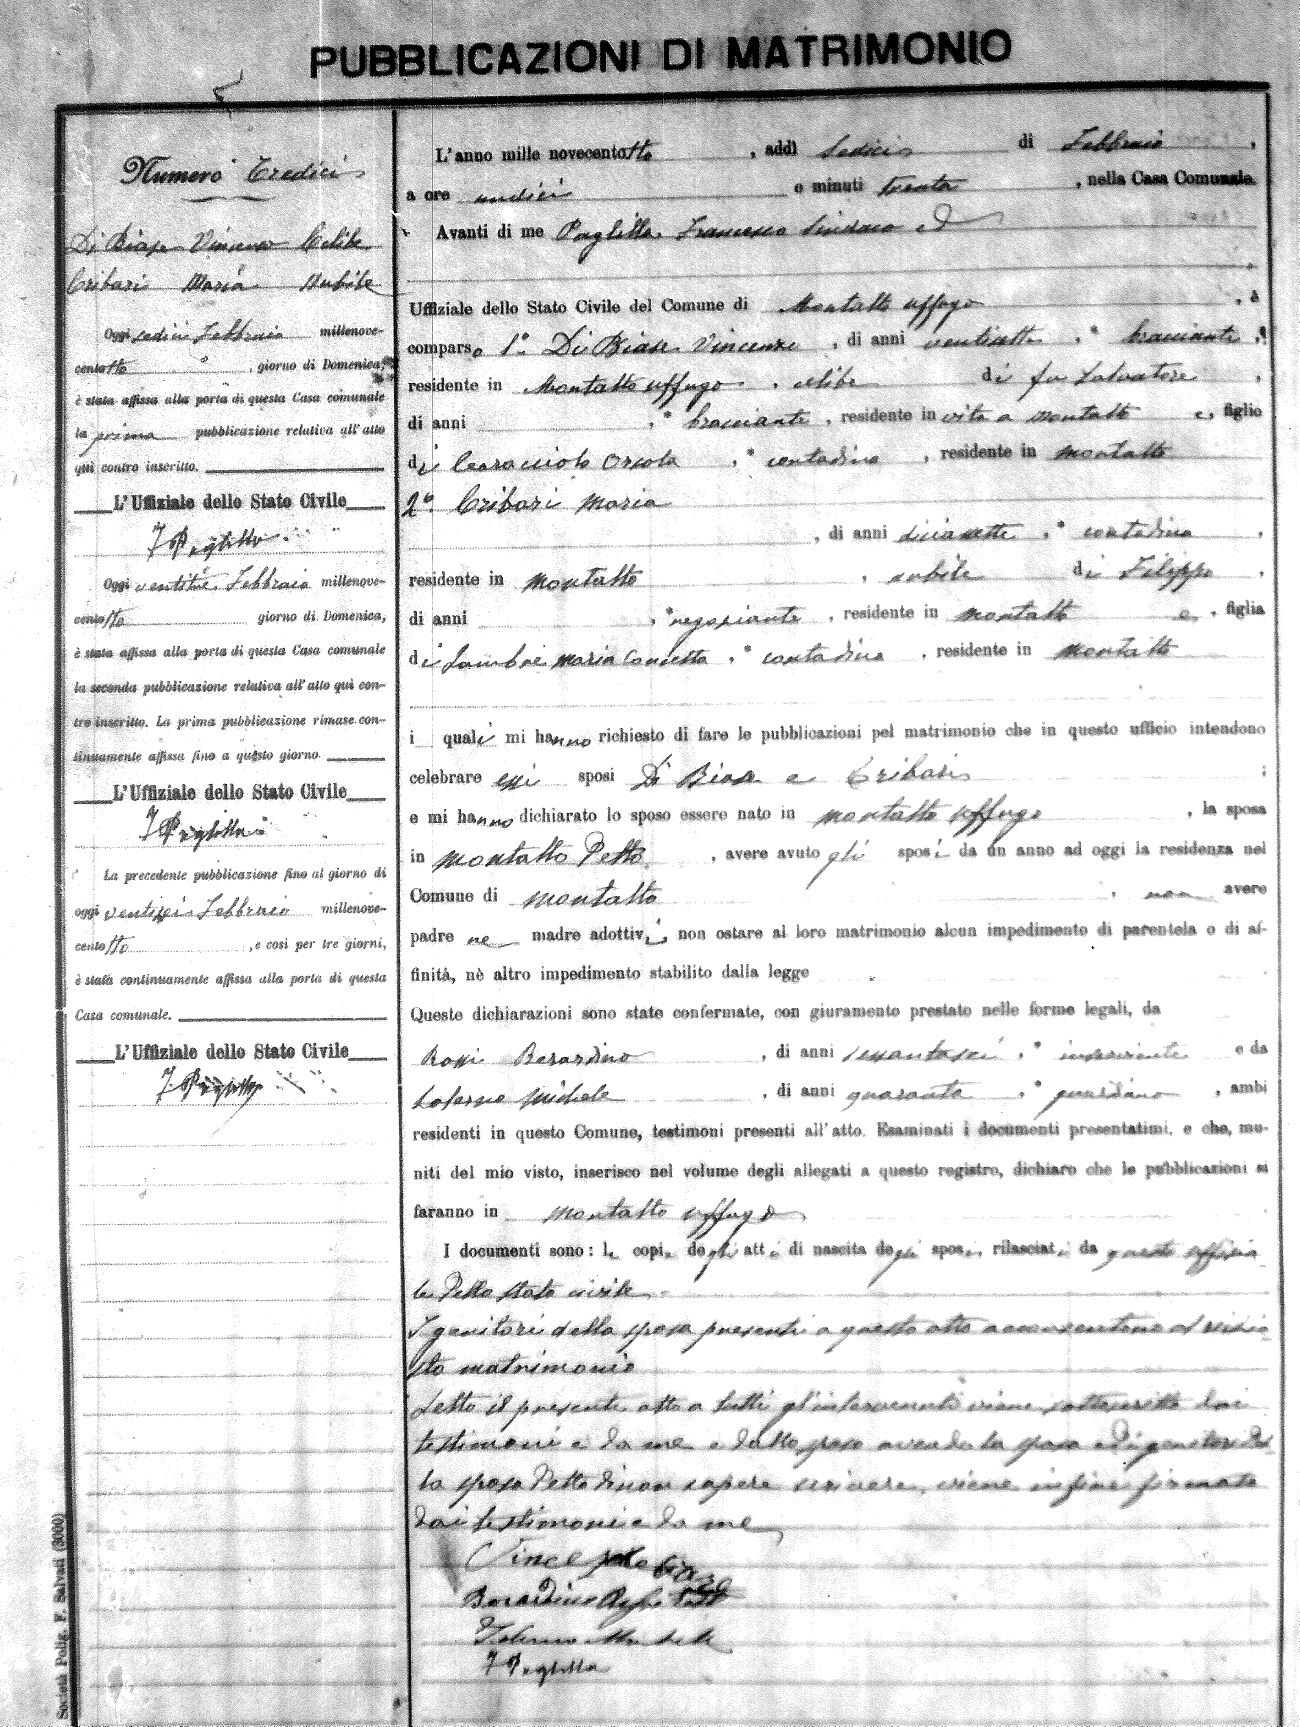 PUBBLICAZIONI DI MATRIMONIO
Numero Tredici
Di Biase Vincenzo Celibe
Cribari Maria Nubile
Oggi sedici Febbraio millenove-
centotto , giorno di Domenica,
è stata affissa alla porta di questa Casa comunale
la prima pubblicazione relativa all'atto
qui contro inscritto.
L'Uffiziale dello Stato Civile
F Paglilla
Oggi ventitrè Febbraio millenove-
centotto giorno di Domenica,
è stata affissa alla porta di questa Casa comunale
la seconda pubblicazione relativa all'atto quì con-
tro inscritto. La prima pubblicazione rimase con-
tinuamente affissa fino a questo giorno.
L'Uffiziale dello Stato Civile
F Paglilla
La precedente pubblicazione fino al giorno di
oggi ventisei Febbraio millenove-
centotto , e così per tre giorni,
è stata continuamente affissa alla porta di questa
Casa comunale.
L'Uffiziale dello Stato Civile
F Paglilla
L'anno mille novecentotto , addì Sedici di Febbraio ,
a ore undici e minuti trenta , nella Casa Comunale.
Avanti di me Paglilla Francesco Sindaco ed
Uffiziale dello Stato Civile del Comune di Montalto Uffugo , è
comparso 1° Di Biase Vincenzo , di anni , * bracciante ,
residente in Montalto Uffugo , celibe di fu Salvatore ,
di anni , * bracciante , residente in vita a Montalto e , figlio
di Caracciolo Orsola , * contadina , residente in Montalto
2° Cribari Maria
, di anni diciasette , * contadina ,
residente in Montalto , nubile di Filippo ,
di anni , * negoziante , residente in Montalto e , figlia
di Maria Concetta , * contadina , residente in Montalto
i quali mi hanno richiesto di fare le pubblicazioni pel matrimonio che in questo ufficio intendono
celebrare essi sposi Di Biase e Cribari ;
e mi hanno dichiarato lo sposo essere nato in Montalto Uffugo , la sposa
in Montalto Detto , avere avuto gli sposi da un anno ad oggi la residenza nel
Comune di Montalto , non avere
padre ne madre adottivi, non ostare al loro matrimonio alcun impedimento di parentela o di af-
finità, nè altro impedimento stabilito dalla legge
Queste dichiarazioni sono state confermate, con giuramento prestato nelle forme legali, da
Rossi Berardino , di anni sessantasei , * inserviente e da
Michele , di anni quaranta , * guardiano , ambi
residenti in questo Comune, testimoni presenti all'atto. Esaminati i documenti presentatimi, e che, mu-
niti del mio visto, inserisco nel volume degli allegati a questo registro, dichiaro che le pubblicazioni si
faranno in Montalto Uffugo
I documenti sono: le copie degli atti di nascita degli sposi, rilasciati da questo Uffizia
le Dello Stato civile
I genitori della sposa presenti a questo atto acconsentono al
sto matrimonio
Letto il presente atto a tutti gl'intervenuti viene sottoscritto dai
testimoni e da me e dallo sposo avendo la sposa e Di genitori Del
la sposa Detto di non sapere scrivere, viene infine firmato
dai testimoni e da me
Berardino
F Paglilla
Società Polig. F. Salvati (3000)